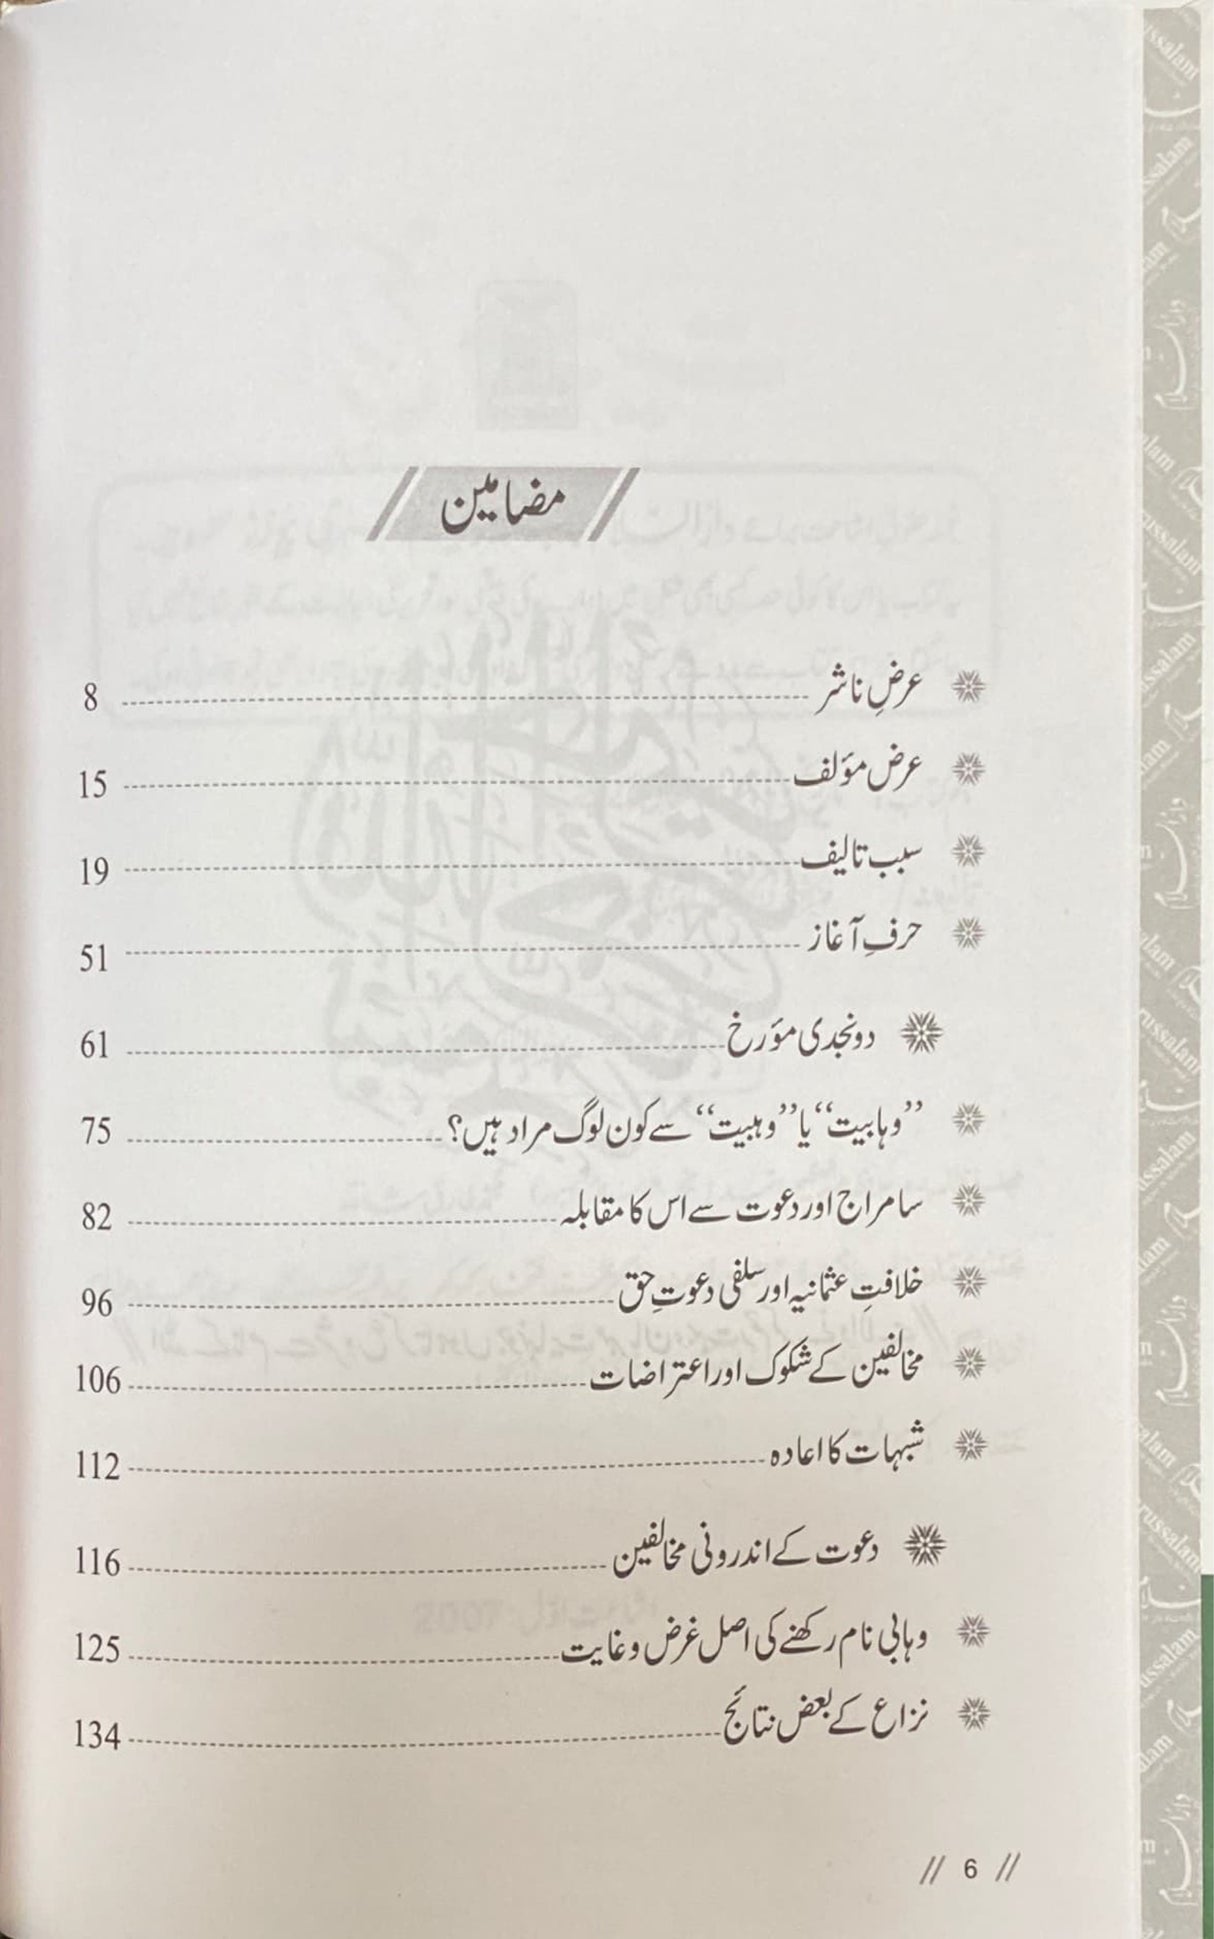 مضامین
عرضِ ناشر 8
عرض مؤلف 15
سبب تالیف 19
حرفِ آغاز 51
دو نجدی مؤرخ 61
”وہابیت“ یا ”وہبیت“ سے کون لوگ مراد ہیں؟ 75
سامراج اور دعوت سے اس کا مقابلہ 82
خلافتِ عثمانیہ اور سلفی دعوتِ حق 96
مخالفین کے شکوک اور اعتراضات 106
شبہات کا اعادہ 112
دعوت کے اندرونی مخالفین 116
وہابی نام رکھنے کی اصل غرض و غایت 125
نزاع کے بعض نتائج 134
// 6 //